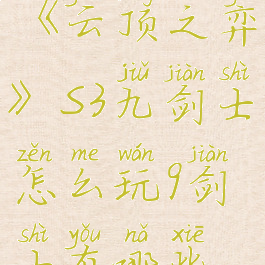 《云顶之弈
jiǔ jiàn shì
》S3九剑士
zěn me wán jiàn
怎么玩9剑
shì yǒu nǎ xiē
士有哪些